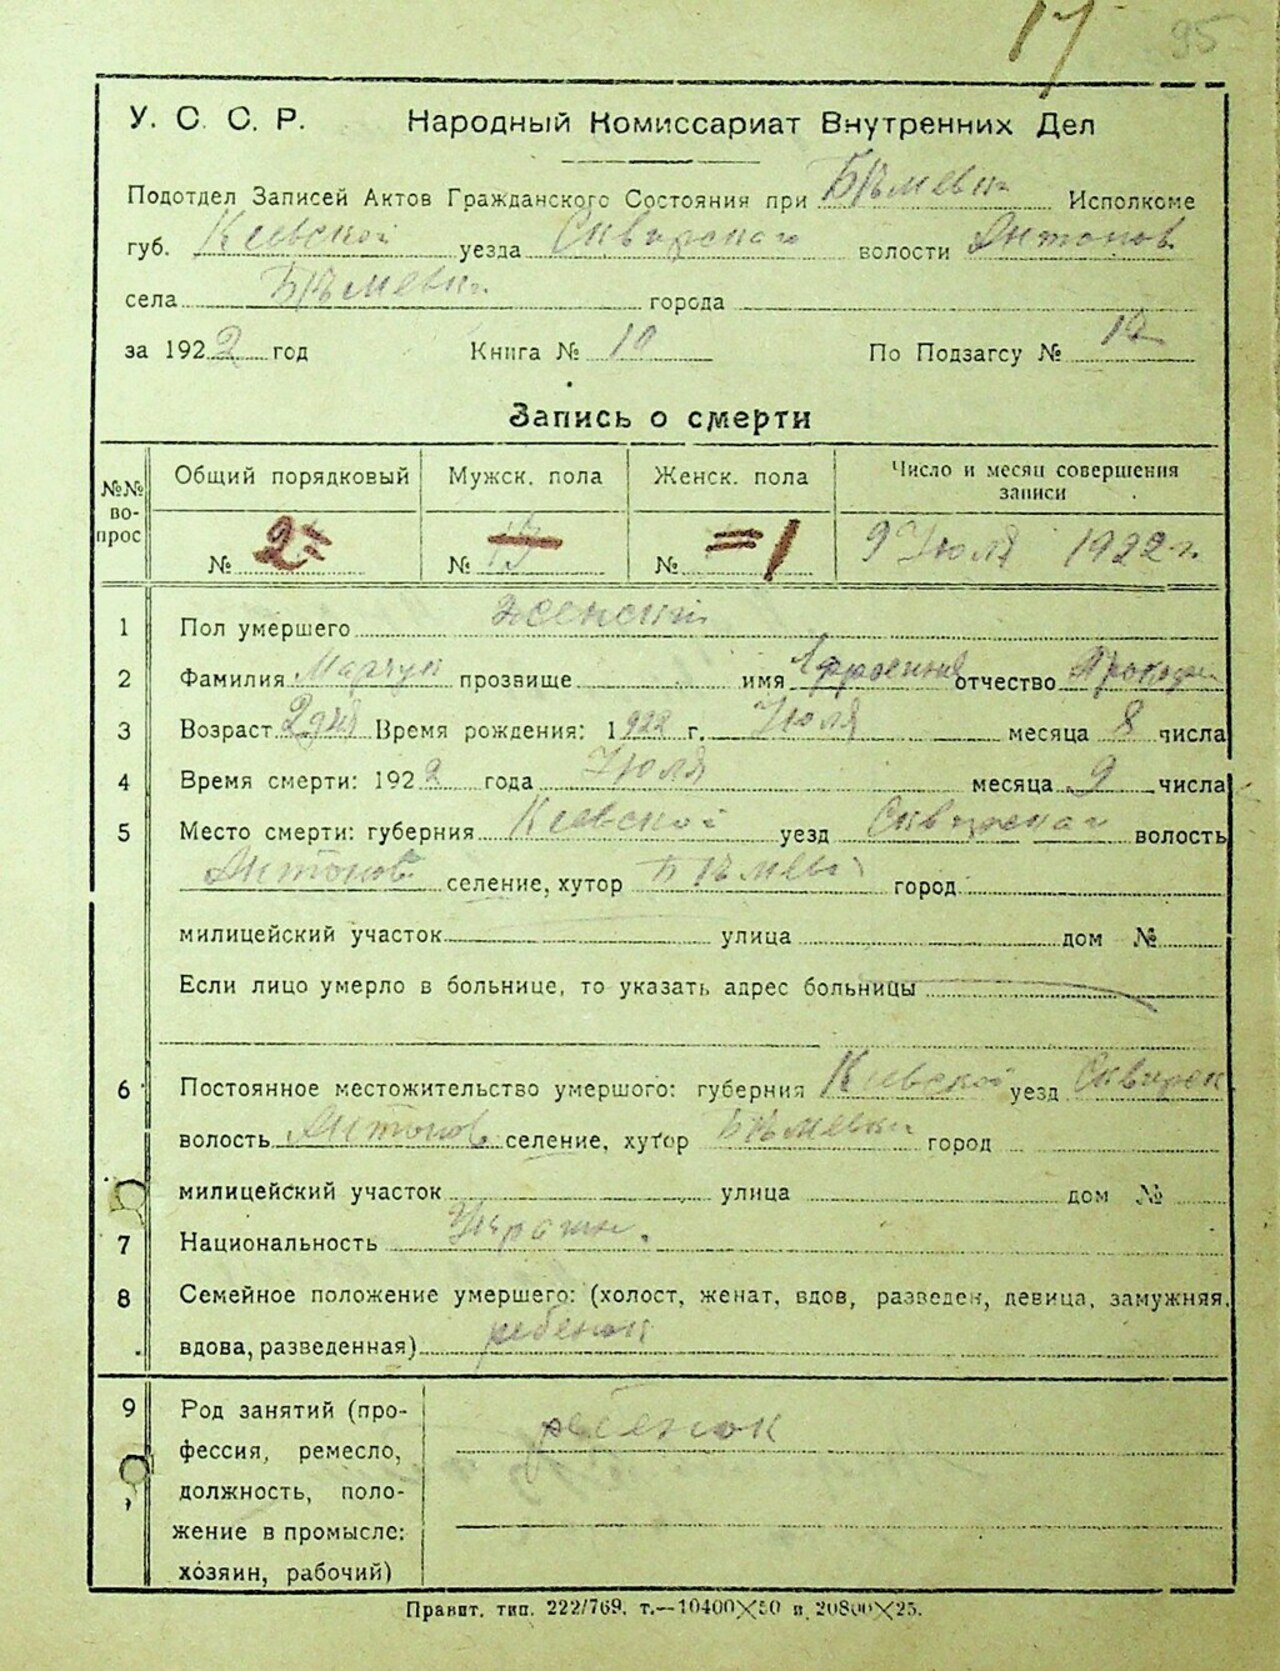 17 95
У. С. С. Р. Народный Комиссариат Внутренних Дел
Подотдел Записей Актов Гражданского Состояния при Исполкоме
губ. Киевской уезда Сквирского волости Антонов.
села города
за 1922 год Книга № 10 По Подзагсу № 12
Запись о смерти
№№ вопрос Общий порядковый Мужск. пола Женск. пола Число и месяц совершения записи
№ 2 № № 1 9 Июля 1922 г.
1 Пол умершего женский
2 Фамилия Марчук прозвище имя отчество Прокоф
3 Возраст 2 дня Время рождения: 1922 г. Июля месяца 8 числа
4 Время смерти: 1922 года Июля месяца 9 числа
5 Место смерти: губерния Киевской уезд Сквирская волость
Антонов. селение, хутор город
милицейский участок улица дом №
Если лицо умерло в больнице, то указать адрес больницы
6 Постоянное местожительство умершого: губерния Киевской уезд Сквирск
волость Антонов. селение, хутор город
милицейский участок улица дом №
7 Национальность Украин.
8 Семейное положение умершего: (холост, женат, вдов, разведен, девица, замужняя,
вдова, разведенная) ребенок
9 Род занятий (про-
фессия, ремесло,
должность, поло-
жение в промысле:
хозяин, рабочий)
ребенок
Правит. тип. 222/769. т.—10400×50 и 20800×25.